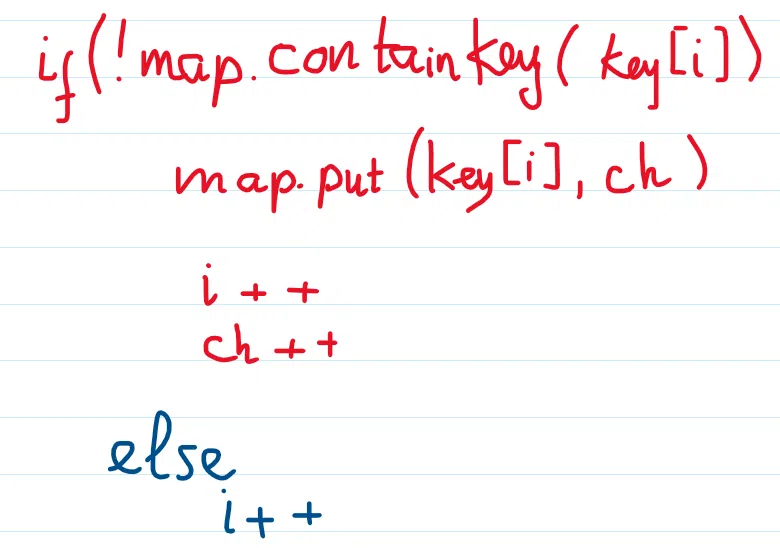 if(!map.containkey(key[i])
map.put(key[i], ch)
i++
ch++
else
i++